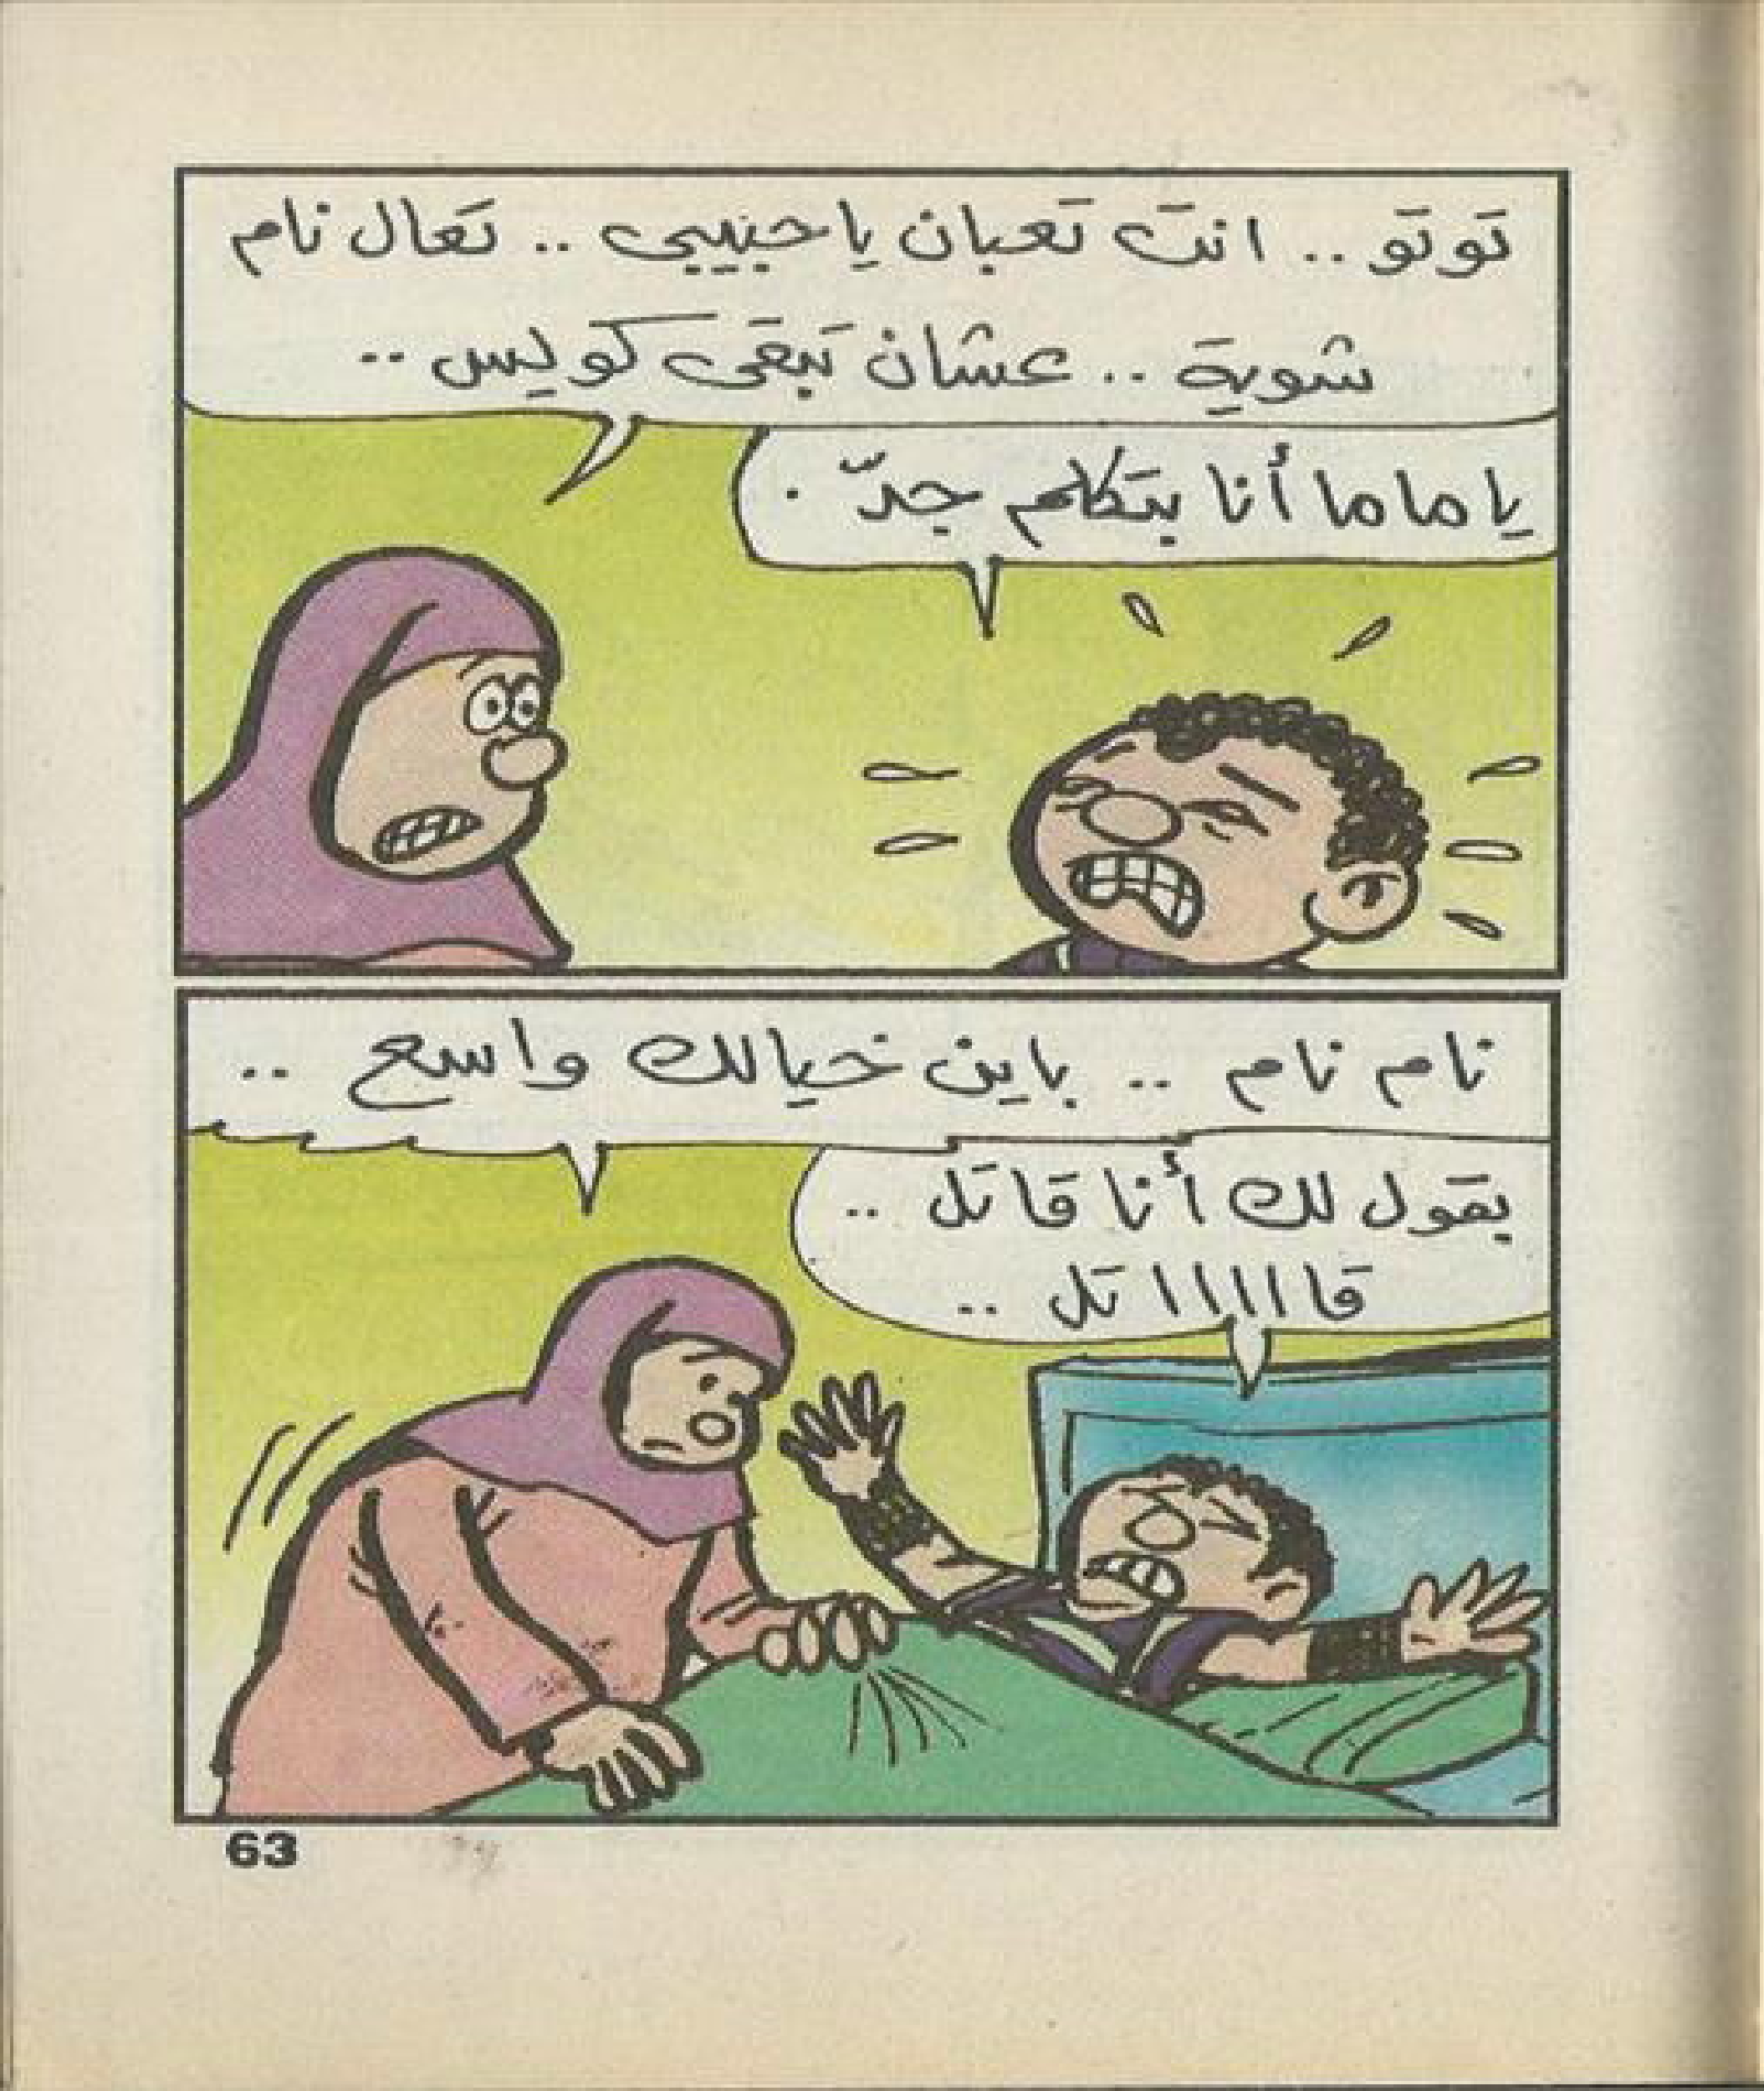 توتو .. انت تعبان يا حبيبي .. تعال نام
شوية .. عشان تبقى كويس ..
يا ماما أنا بتكلم جدّ .
نام نام .. باين خيالك واسع ..
يقول لك أنا قاتل ..
قااااا تل ..
63